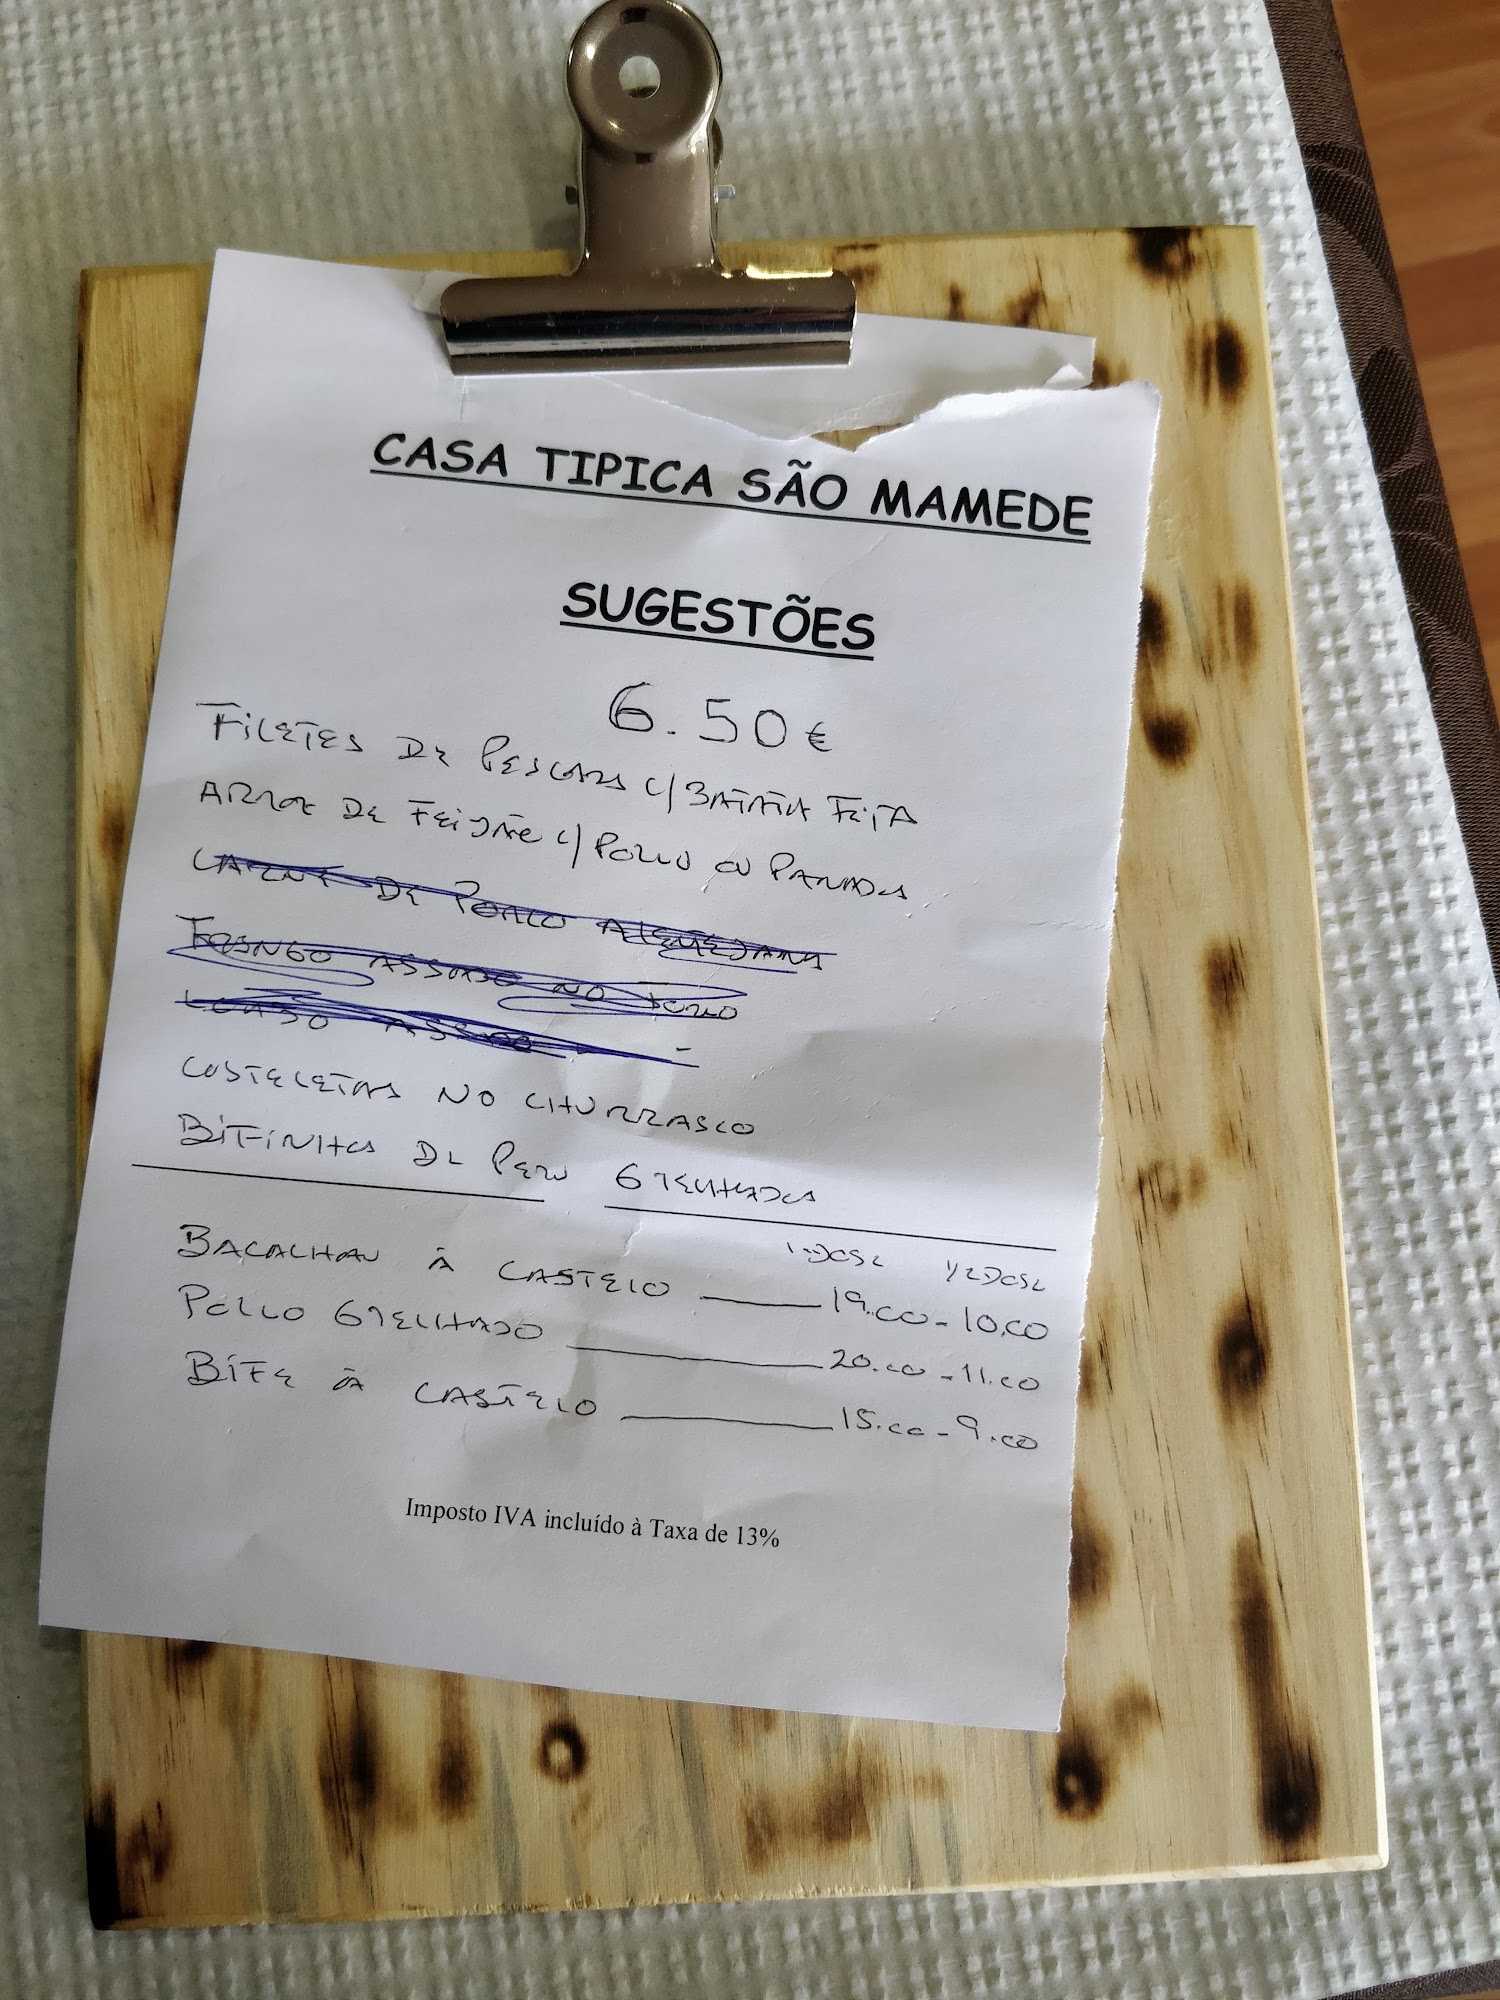 CASA TIPICA SÃO MAMEDE
SUGESTÕES
6.50€
FILETES DE PESCADA C/BATATA FEITA
ARROZ DE FEIJÃO C/POLVO OU PANADOS
CARNE DE PORCO ALENTEJANA
FRANGO ASSADO NO FORNO
ASSADO
COSTELETAS NO CHURRASCO
BIFINHOS DE PERU GRELHADOS
1-DOSE 1/2DOSE
BACALHAU À CASTELO 19.00-10.00
POLVO GRELHADO 20.00-11.00
BIFE À CASTELO 15.00-9.00
Imposto IVA incluído à Taxa de 13%